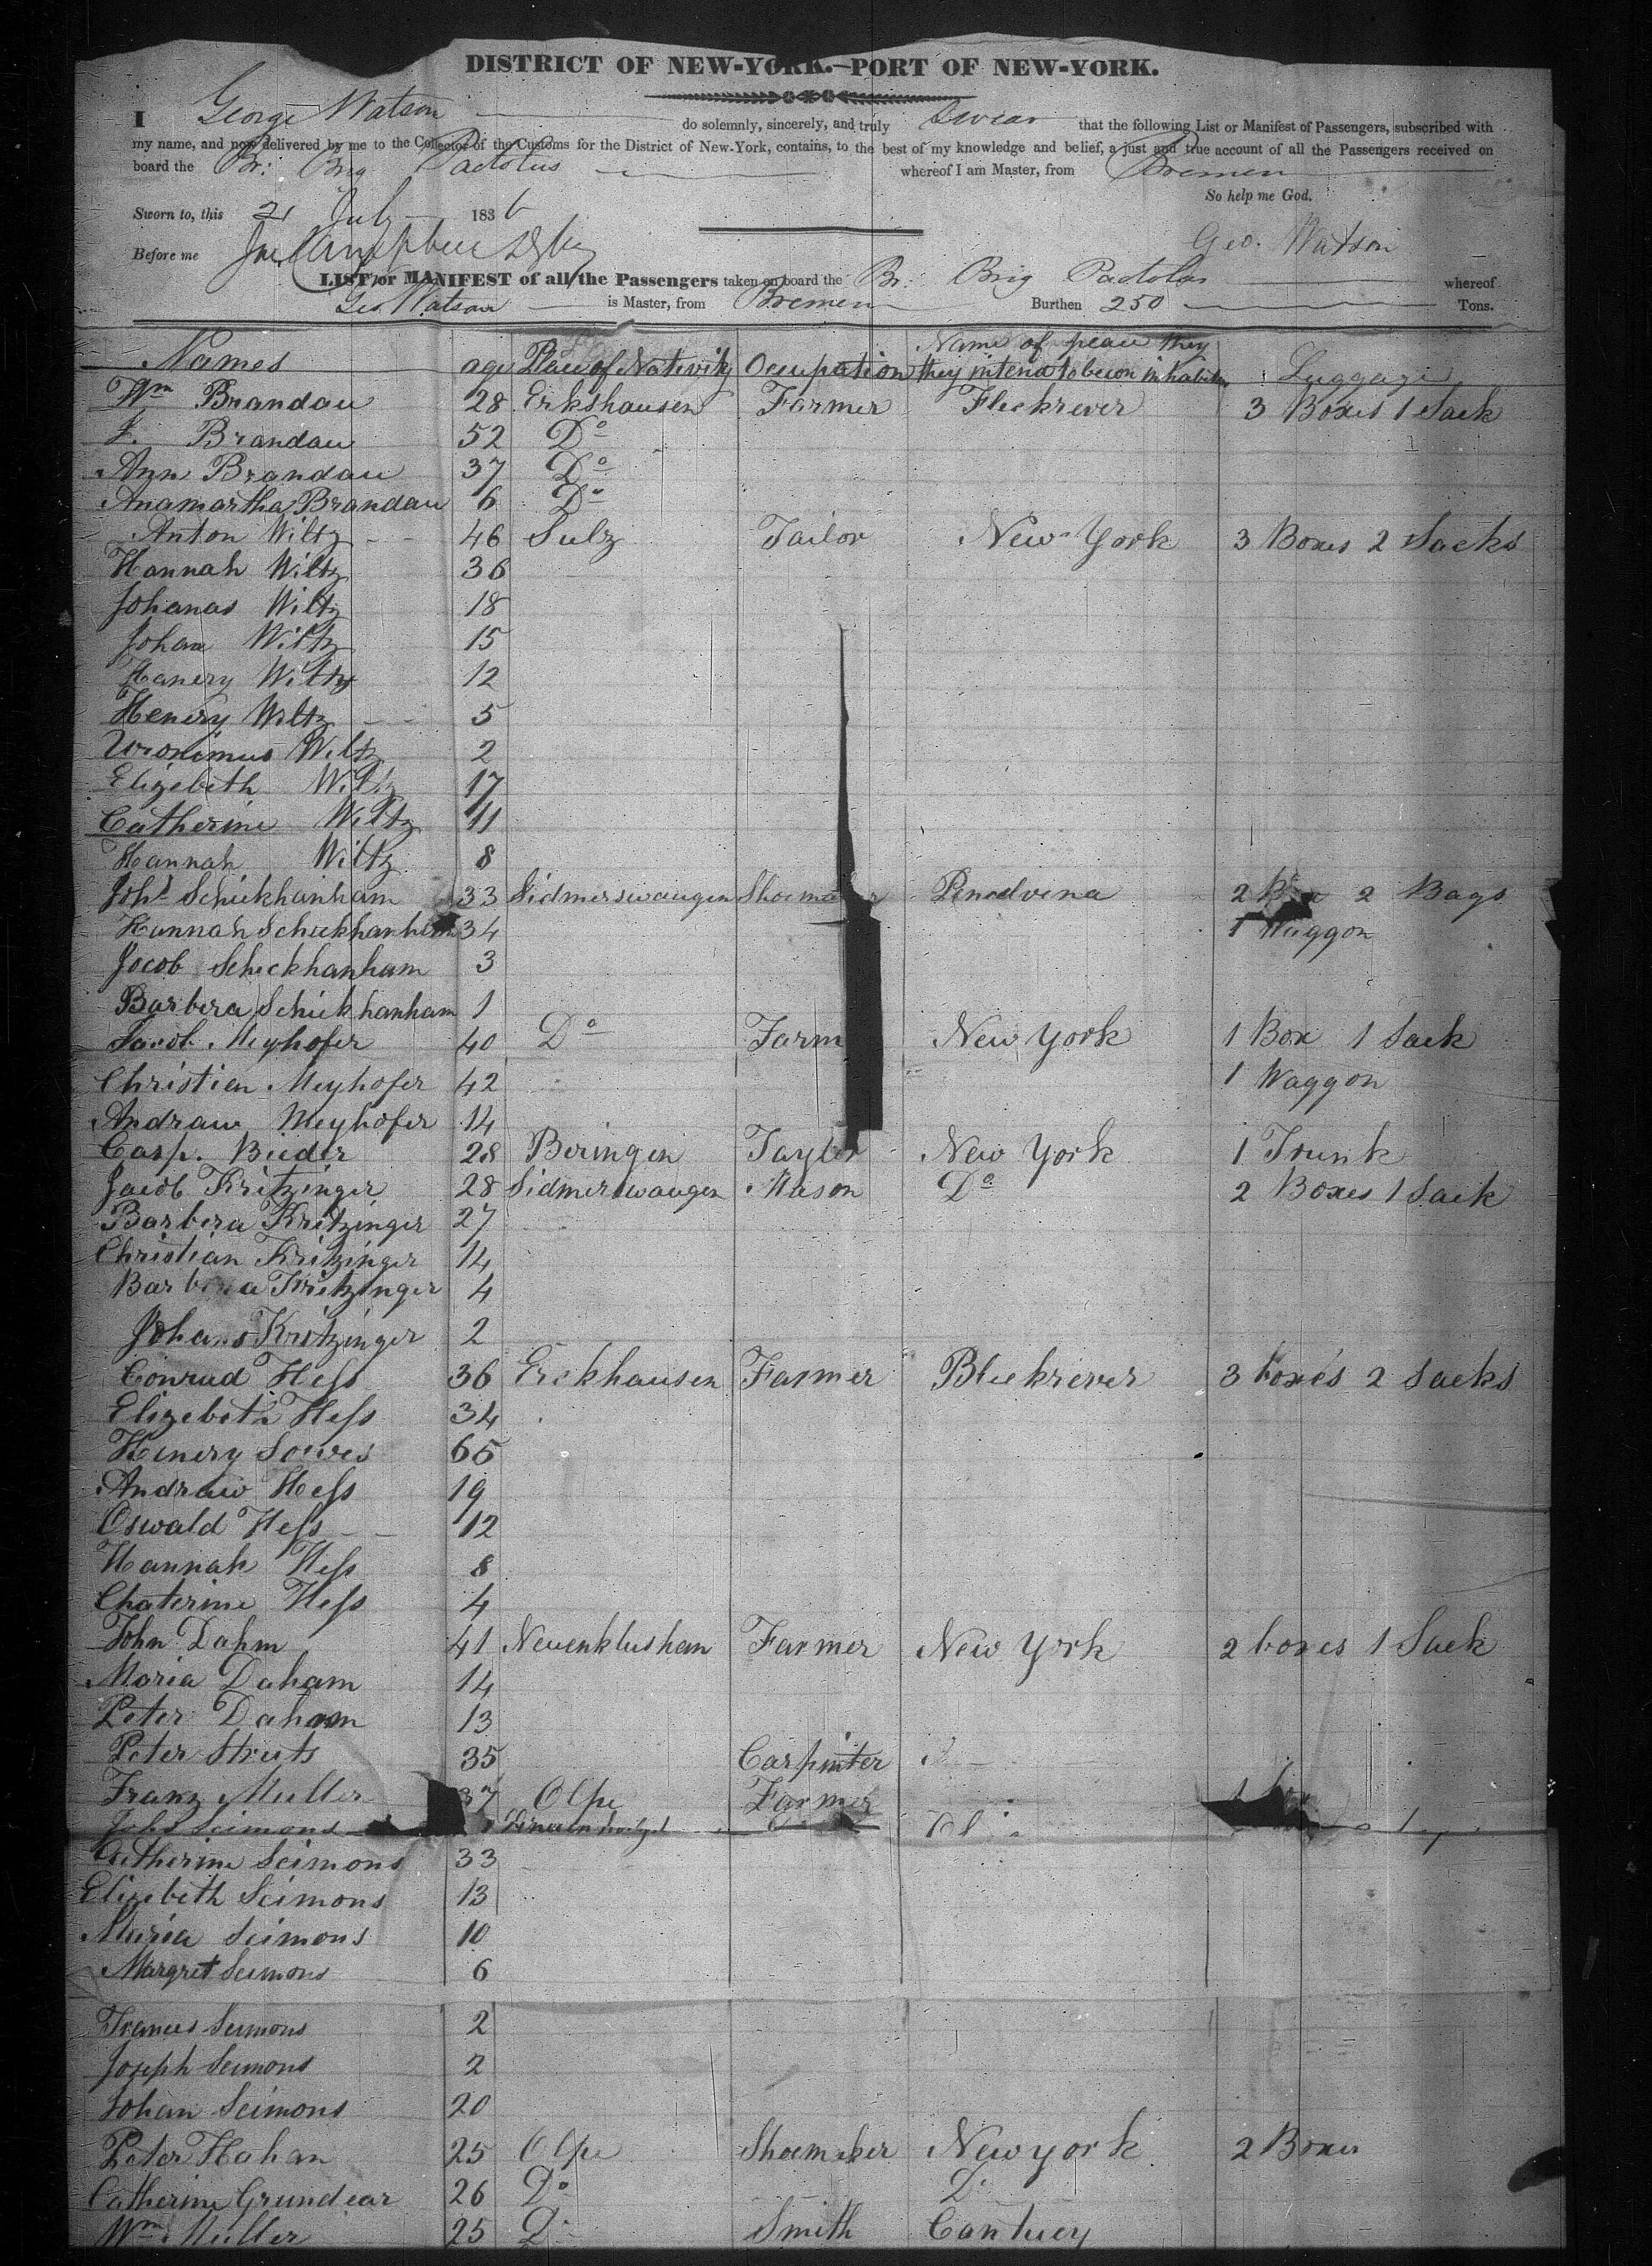 DISTRICT OF NEW-YORK.—PORT OF NEW-YORK.
I George Watson do solemnly, sincerely, and truly Swear that the following List or Manifest of Passengers, subscribed with
my name, and now delivered by me to the Collector of the Customs for the District of New-York, contains, to the best of my knowledge and belief, a just and true account of all the Passengers received on
board the Br: Brig Pactolus whereof I am Master, from Bremen
So help me God.
Sworn to, this 21 July 1836
Geo. Watson
Before me
LIST or MANIFEST of all the Passengers taken on board the Br: Brig Pactolus whereof
Geo. Watson is Master, from Bremen Burthen 250 Tons.
Names age Place of Nativity Ocupation Name of place they they intend to becom inhabitan Luggage
Wm Brandau 28 Erkshausen Farmer Fleekrever 3 Boxes 1 Sack
J. Brandau 52 Do
Ann Brandau 37 Do
Anamartha Brandau 6 Do
Anton Wiltz 46 Sulz Tailor New York 3 Boxes 2 Sacks
Hannah Wiltz 36
Johanas Wiltz 18
Johan Wiltz 15
Hanery Wiltz 12
Henery Wiltz 5
Uronimus Wiltz 2
Elizebeth Wiltz 17
Catherine Wiltz 11
Hannah Wiltz 8
Johs Schickhanham 33 Sidmerswaugen Shoema Penselvena 2 2 Bags
Hannah Schickhanham 34 1 Waggon
Jocob Schickhanham 3
Barbera Schickhanham 1
Jacob Meyhofer 40 Do Farm New York 1 Box 1 Sack
Christien Meyhofer 42 1 Waggon
Andraw Meyhofer 14
Casp. Bieder 28 Beringen Taylor New York 1 Trunk
Jacob Kritzinger 28 Sidmerswaugen Mason Do 2 Boxes 1 Sack
Barbera Kritzinger 27
Christian Kritzinger 14
Barbera Kritzinger 4
Johans Kritzinger 2
Conrad Hess 36 Erekhausen Farmer Bleekrever 3 boxes 2 Sacks
Elizebeth Hess 34
Henery Sowes 65
Andraw Hess 19
Oswald Hess 12
Hannah Hess 8
Chaterine Hess 4
John Dahm 41 Neuenklusham Farmer New York 2 boxes 1 Sack
Moria Daham 14
Peter Daham 13
Peter Struts 35 Carpinter
Franz Muller 37 Olpe Farmer
John Seimons
Catherine Seimons 33
Elizebeth Seimons 13
Maria Seimons 10
Margret Seimons 6
Frances Seimons 2
Joseph Seimons 2
Johan Seimons 20
Peter Hahan 25 Olpe Shoemeker New york 2 Boxes
Catherine Grundear 26 Do Do
Wm Muller 25 Do Smith Cantucy